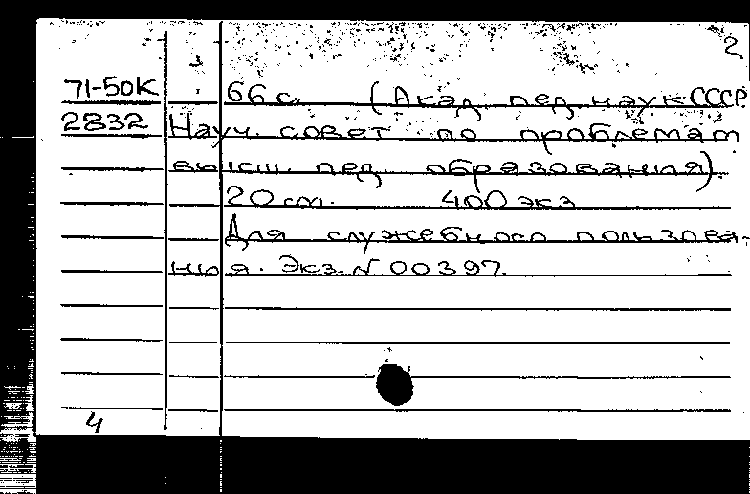 2
71-50К 66 с. (Акад. пед. наук СССР.
2832 Науч. совет по проблемам
высш. пед. образования).
20 см. 400 экз
Для служебного пользова-
ния. Экз. № 00397.
4